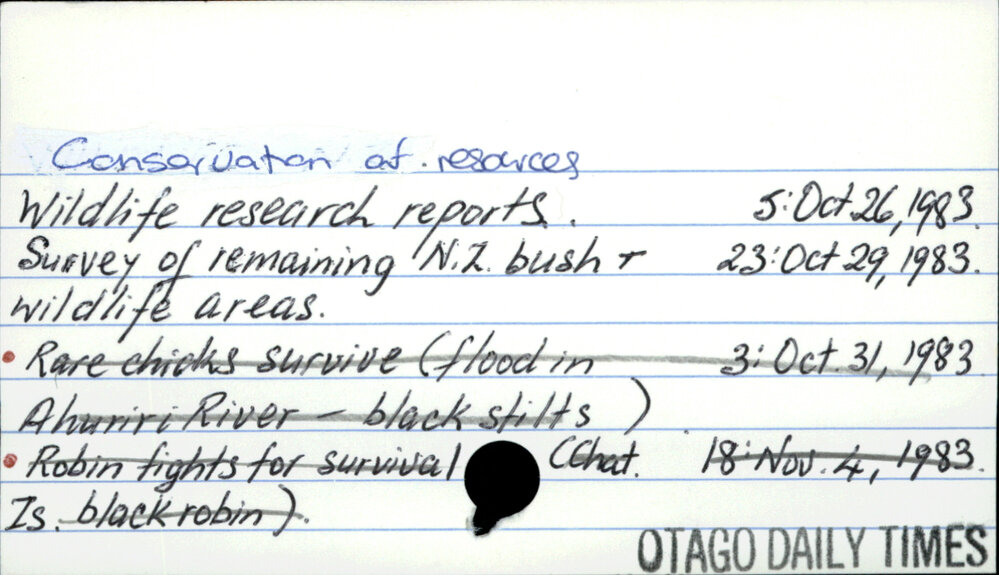 Conservation of resources
Wildlife research reports. 5: Oct 26, 1983.
Survey of remaining N.Z. bush + 23: Oct 29, 1983.
wildlife areas.
• Rare chicks survive (flood in 3: Oct. 31, 1983
Ahuriri River – black stilts )
• Robin fights for survival (Chat. 18: Nov. 4, 1983.
Is. black robin).
OTAGO DAILY TIMES